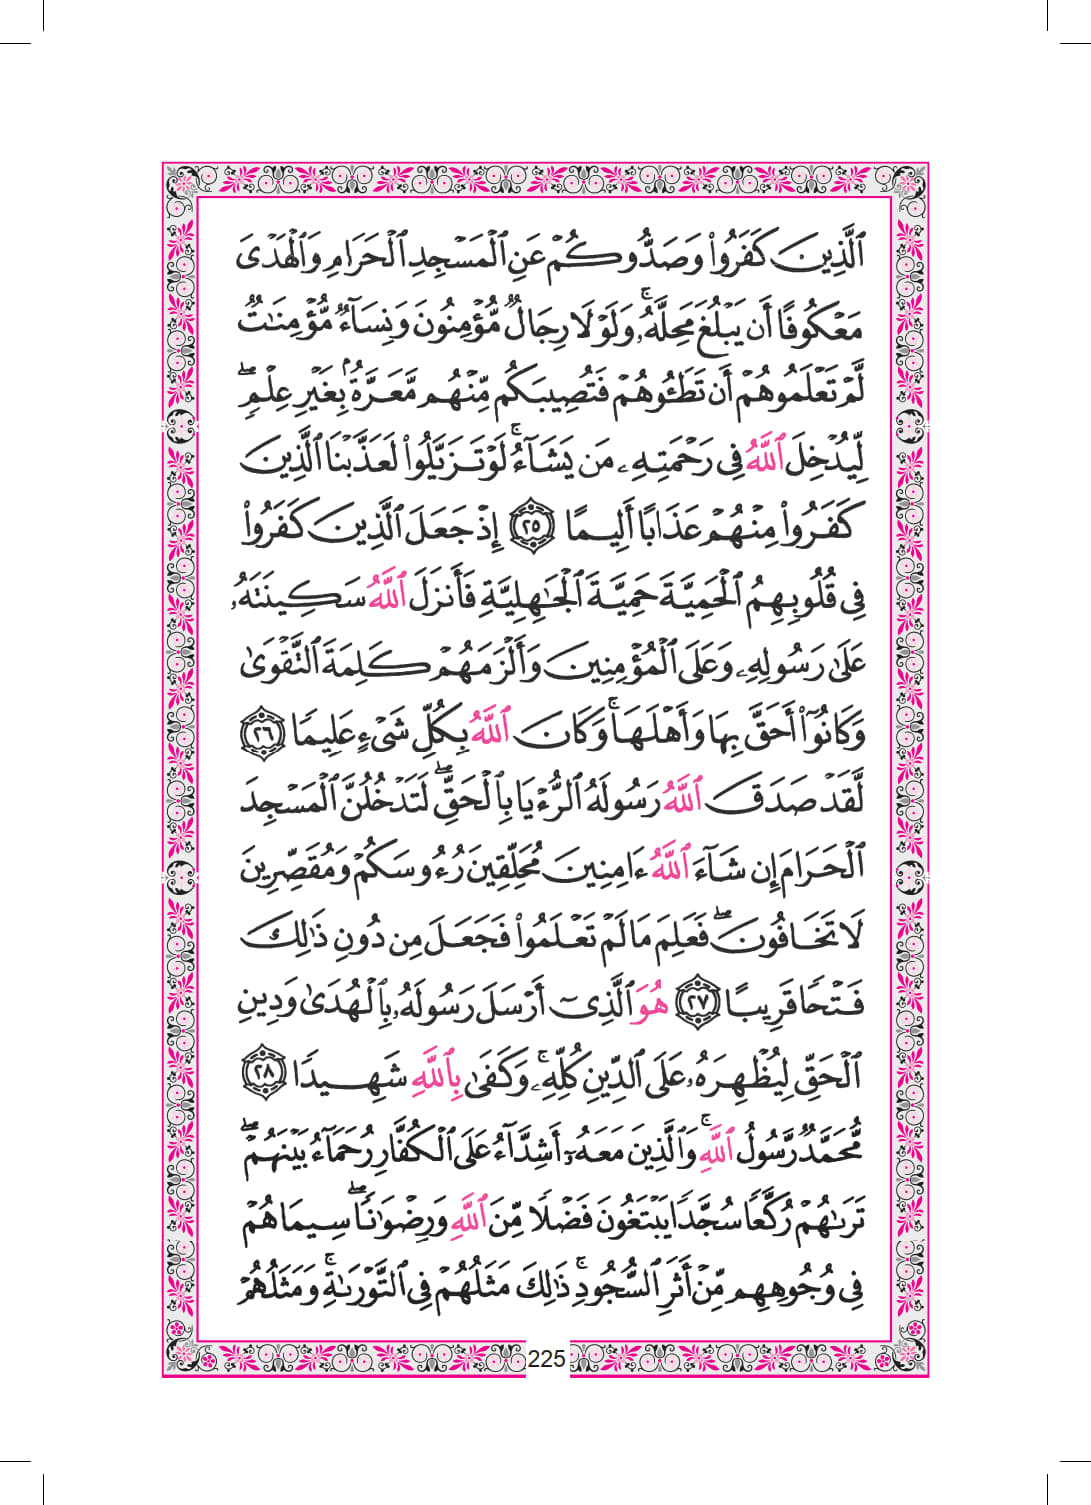 ٱلَّذِينَ كَفَرُوا۟ وَصَدُّوكُمْ عَنِ ٱلْمَسْجِدِ ٱلْحَرَامِ وَٱلْهَدْىَ
مَعْكُوفًا أَن يَبْلُغَ مَحِلَّهُۥ ۚ وَلَوْلَا رِجَالٌ مُّؤْمِنُونَ وَنِسَآءٌ مُّؤْمِنَـٰتٌ
لَّمْ تَعْلَمُوهُمْ أَن تَطَـُٔوهُمْ فَتُصِيبَكُم مِّنْهُم مَّعَرَّةٌۢ بِغَيْرِ عِلْمٍ ۖ
لِّيُدْخِلَ ٱللَّهُ فِى رَحْمَتِهِۦ مَن يَشَآءُ ۚ لَوْ تَزَيَّلُوا۟ لَعَذَّبْنَا ٱلَّذِينَ
كَفَرُوا۟ مِنْهُمْ عَذَابًا أَلِيمًا ٢٥ إِذْ جَعَلَ ٱلَّذِينَ كَفَرُوا۟
فِى قُلُوبِهِمُ ٱلْحَمِيَّةَ حَمِيَّةَ ٱلْجَـٰهِلِيَّةِ فَأَنزَلَ ٱللَّهُ سَكِينَتَهُۥ
عَلَىٰ رَسُولِهِۦ وَعَلَى ٱلْمُؤْمِنِينَ وَأَلْزَمَهُمْ كَلِمَةَ ٱلتَّقْوَىٰ
وَكَانُوٓا۟ أَحَقَّ بِهَا وَأَهْلَهَا ۚ وَكَانَ ٱللَّهُ بِكُلِّ شَىْءٍ عَلِيمًا ٢٦
لَّقَدْ صَدَقَ ٱللَّهُ رَسُولَهُ ٱلرُّءْيَا بِٱلْحَقِّ ۖ لَتَدْخُلُنَّ ٱلْمَسْجِدَ
ٱلْحَرَامَ إِن شَآءَ ٱللَّهُ ءَامِنِينَ مُحَلِّقِينَ رُءُوسَكُمْ وَمُقَصِّرِينَ
لَا تَخَافُونَ ۖ فَعَلِمَ مَا لَمْ تَعْلَمُوا۟ فَجَعَلَ مِن دُونِ ذَٰلِكَ
فَتْحًا قَرِيبًا ٢٧ هُوَ ٱلَّذِىٓ أَرْسَلَ رَسُولَهُۥ بِٱلْهُدَىٰ وَدِينِ
ٱلْحَقِّ لِيُظْهِرَهُۥ عَلَى ٱلدِّينِ كُلِّهِۦ ۚ وَكَفَىٰ بِٱللَّهِ شَهِيدًا ٢٨
مُّحَمَّدٌ رَّسُولُ ٱللَّهِ ۚ وَٱلَّذِينَ مَعَهُۥٓ أَشِدَّآءُ عَلَى ٱلْكُفَّارِ رُحَمَآءُ بَيْنَهُمْ ۖ
تَرَىٰهُمْ رُكَّعًا سُجَّدًا يَبْتَغُونَ فَضْلًا مِّنَ ٱللَّهِ وَرِضْوَٰنًا ۖ سِيمَاهُمْ
فِى وُجُوهِهِم مِّنْ أَثَرِ ٱلسُّجُودِ ۚ ذَٰلِكَ مَثَلُهُمْ فِى ٱلتَّوْرَىٰةِ ۚ وَمَثَلُهُمْ
225